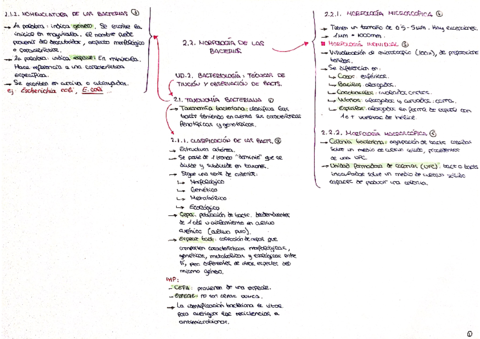 2.1.2. NOMENCLATURA DE LAS BACTERIAS ③
→ 1ª palabra: indica género. Se escribe la
inicial en mayúscula. El nombre puede
provenir del descubridor, aspecto morfológico
o característica.
→ 2ª palabra: indica especie. En minúscula.
Hace referencia a una característica
específica.
→ Se escriben en cursiva o subrayadas.
Ej. Escherichia coli, E. coli
2.2. MORFOLOGÍA DE LAS
BACTERIAS
UD.2. BACTERIOLOGÍA: TÉCNICAS DE
TINCIÓN Y OBSERVACIÓN DE BACT.
2.1. TAXONOMÍA BACTERIANA ①
→ Taxonomía bacteriana: clasifica las
bact. teniendo en cuenta sus características
fenotípicas y genotípicas.
2.1.1. CLASIFICACIÓN DE LAS BACT. ②
→ Estructura
→ Se parte de 1 grado "dominio" que se
divide y subdivide en taxones.
→ Sigue una serie de criterios:
↳ Morfológico
↳ Genético
↳ Metabólico
↳ Ecológico
→ Cepa: población de bact. descendientes
de 1 célula o aislamiento en cultivo
axénico (cultivo puro).
→ Especie bact.: colección de cepas que
comparten características morfológicas,
genéticas, metabólicas y ecológicas entre
sí, pero diferentes de otras especies del
mismo género.
IMP:
- CEPA: provienen de una especie.
- ESPECIE: no son cepas únicas.
→ La identificación bacteriana es vital
para averiguar las resistencias a
antimicrobianos.
2.2.1. MORFOLOGÍA MICROSCÓPICA ④
→ Tienen un tamaño de 0.5 - 5 µm. Hay excepciones.
→ 1 µm = 1000 nm.
MORFOLOGÍA INDIVIDUAL ⑤
→ Visualización al microscopio (100x), de preparación
teñida.
→ Se diferencian en:
↳ Cocos: esféricas.
↳ Bacilos: alargados.
↳ Cocobacilos: ovalados, cortos.
↳ Vibrios: alargados y curvados, coma.
↳ Espirilos: alargados en forma de espiral con
1 o + vueltas de hélice.
2.2.2. MORFOLOGÍA MACROSCÓPICA ⑥
→ Colonia bacteriana: agrupación de bact. crecidas
sobre un medio de cultivo sólido, procedentes
de una UFC.
→ Unidad formadora de colonias (UFC): bact. o bacts
inoculadas sobre un medio de cultivo sólido
capaces de producir una colonia.
①